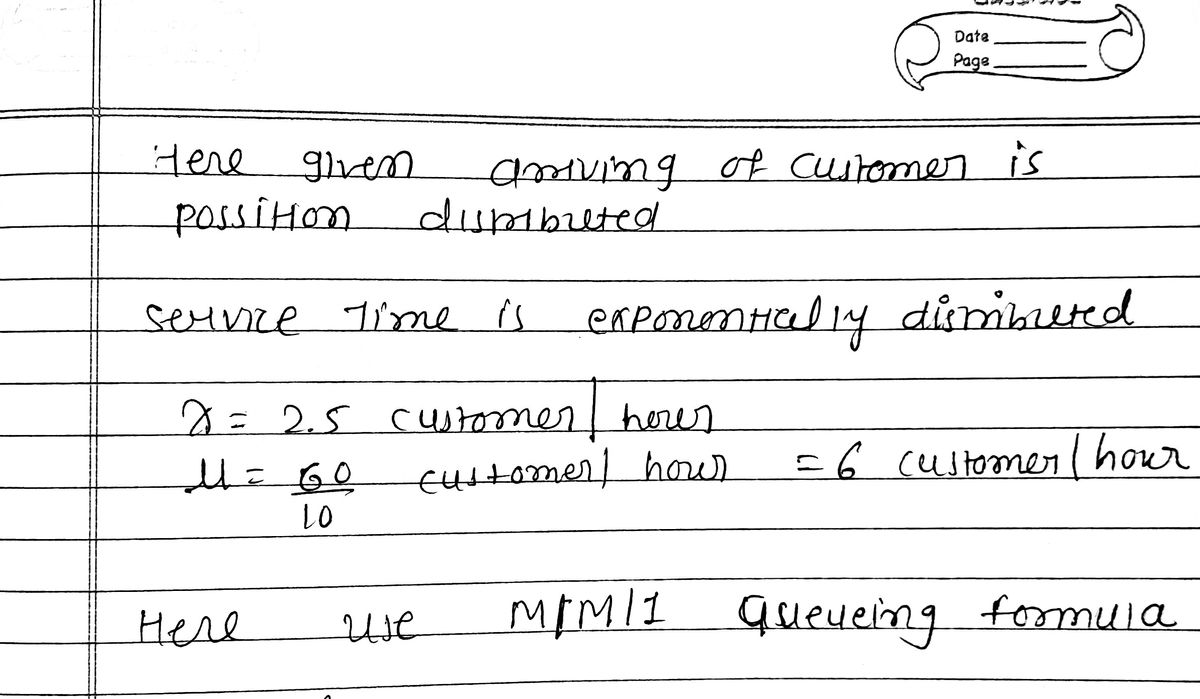 Date
Page
Here given arriving of customer is
possition distributed
service Time is exponentially distributed
λ = 2.5 customer/hour
μ = 60/10 customer/hour = 6 customer/hour
Here use M/M/1 Queueing formula